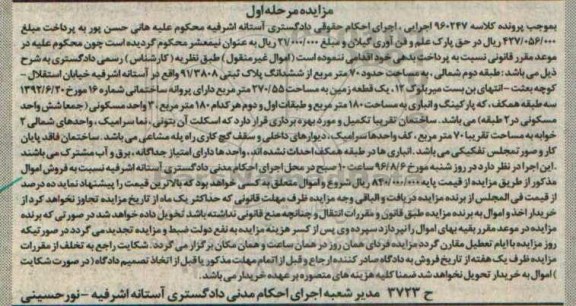 مزایده مرحله اول
بموجب پرونده کلاسه ۹۶۰۲۴۷ اجرایی ، اجرای احکام حقوقی دادگستری آستانه اشرفیه محکوم علیه هانی حسن پور به پرداخت مبلغ
۴۳۷/۰۵۶/۰۰۰ ریال در حق پارک علم و فن آوری گیلان و مبلغ ۲۷/۰۰۰/۰۰۰ ریال به عنوان نیمعشر محکوم گردیده است چون محکوم علیه در
موعد مقرر قانونی نسبت به پرداخت بدهی خود اقدامی ننموده است (اموال غیر منقول ) طبق نظریه ( کارشناس ) رسمی دادگستری به شرح
ذیل می باشد : طبقه دوم شمالی ، به مساحت حدود ۷۰ متر مربع از ششدانگ پلاک ثبتی ۹۷/۳۸۰۸ واقع در آستانه اشرفیه خیابان استقلال -
کوچه بعثت - انتهای بن بست میر بلوک ۱۲ ، یک قطعه زمین به مساحت ۲۷۰/۵۵ متر مربع دارای پروانه ساختمانی شماره ۱۶ مورخ ۱۳۹۲/۶/۲۰
سه طبقه همکف ، که پارکینگ و انباری به مساحت ۱۸۰ متر مربع و طبقات اول و دوم هر کدام ۱۸۰ متر مربع ، ۳ واحد مسکونی ( جمعا شش واحد
مسکونی در ۲ طبقه) می باشد . ساختمان تقریبا تکمیل و مورد بهره برداری قرار دارد که اسکلت آن بتونی ، نما سرامیک ، واحدهای شمالی ۲
خوابه به مساحت تقریبا ۷۰ متر مربع ، کف واحدها سرامیک ، دیوارهای داخلی و سقف گچ کاری راه پله مشاعی می باشد . ساختمان فاقد پایان
کار و صورتمجلس تفکیکی می باشد . انباری ها در طبقه همکف احداث نشده اند ، واحدها دارای امتیاز جداگانه ، برق و آب مشترک می باشند
.این اجرا در نظر دارد در روز شنبه مورخ ۹۶/۸/۶ ساعت ۱۰ صبح در محل اجرای احکام مدنی دادگستری آستانه اشرفیه نسبت به فروش اموال
مذکور از طریق مزایده از قیمت پایه ۸۴۰/۰۰۰/۰۰۰ ریال شروع و اموال متعلق به کسی خواهد بود که بالاترین قیمت را پیشنهاد نماید ده درصد
از قیمت فی المجلس از برنده مزایده دریافت و الباقی وجه مزایده ظرف مهلت قانونی که حداکثر یک ماه از تاریخ مزایده تجاوز نخواهد کرد از
خریدار اخذ و اموال به برنده مزایده طبق قانون و مقررات انتقال و چنانچه منع قانونی نداشته باشد تحویل داده خواهد شد در صورتی که برنده
مزایده در موعد مقرر بقیه بهای اموال را نپردازد سپرده وی پس از کسر هزینه مزایده به نفع دولت ضبط و مزایده تجدید می گردد در صورتیکه
روز مزایده با ایام تعطیل مقارن گردد مزایده فردای همان روز در همان ساعت و همان مکان برگزار می گردد . شکایت راجع به تخلف از مقررات
مزایده ظرف یک هفته از تاریخ فروش به دادگاه صادر کننده ارجاع و قبل از اتمام مهلت مذکور یا قبل از اتخاذ تصمیم دادگاه ( در صورت شکایت
) اموال به خریدار تحویل نخواهد شد ضمنا کلیه هزینه های متصوره بر عهده خریدار می باشد .
ح ۳۷۲۳ مدیر شعبه اجرای احکام مدنی دادگستری آستانه اشرفیه - نور حسینی